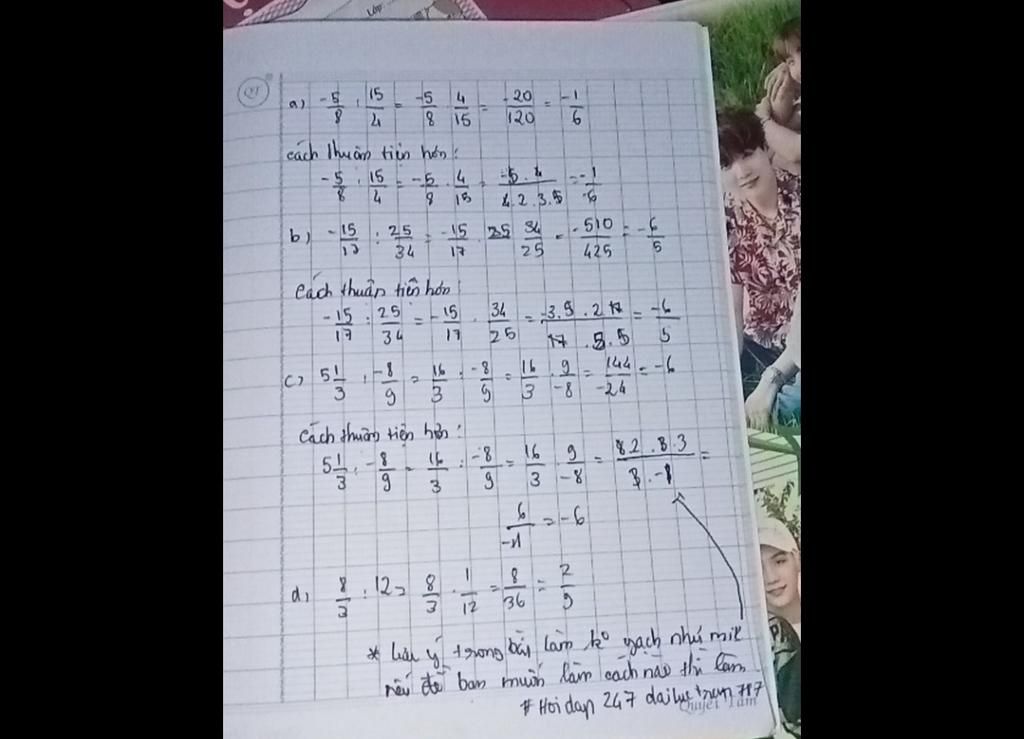 Lớp
a) -5/8 : 15/4 = -5/8 . 4/15 = -20/120 = -1/6
cách thuận tiện hơn:
-5/8 : 15/4 = -5/8 . 4/15 = -5.4/4.2.3.5 = -1/6
b) -15/17 : 25/34 = -15/17 . 34/25 = -510/425 = -6/5
Cách thuận tiện hơn:
-15/17 : 25/34 = -15/17 . 34/25 = -3.5.2.17/17.5.5 = -6/5
c) 5 1/3 : -8/9 = 16/3 : -8/9 = 16/3 . 9/-8 = 144/-24 = -6
Cách thuận tiện hơn:
5 1/3 : -8/9 = 16/3 : -8/9 = 16/3 . 9/-8 = 82.8.3/3.-1 =
6/-1 = -6
d, 8/3 : 12 = 8/3 . 1/12 = 8/36 = 2/9
* Lưu ý trong bài làm ko gạch như mik
nếu đề bạn muốn làm cách nào thì làm
# Hoidap 247
Quyết Tâm